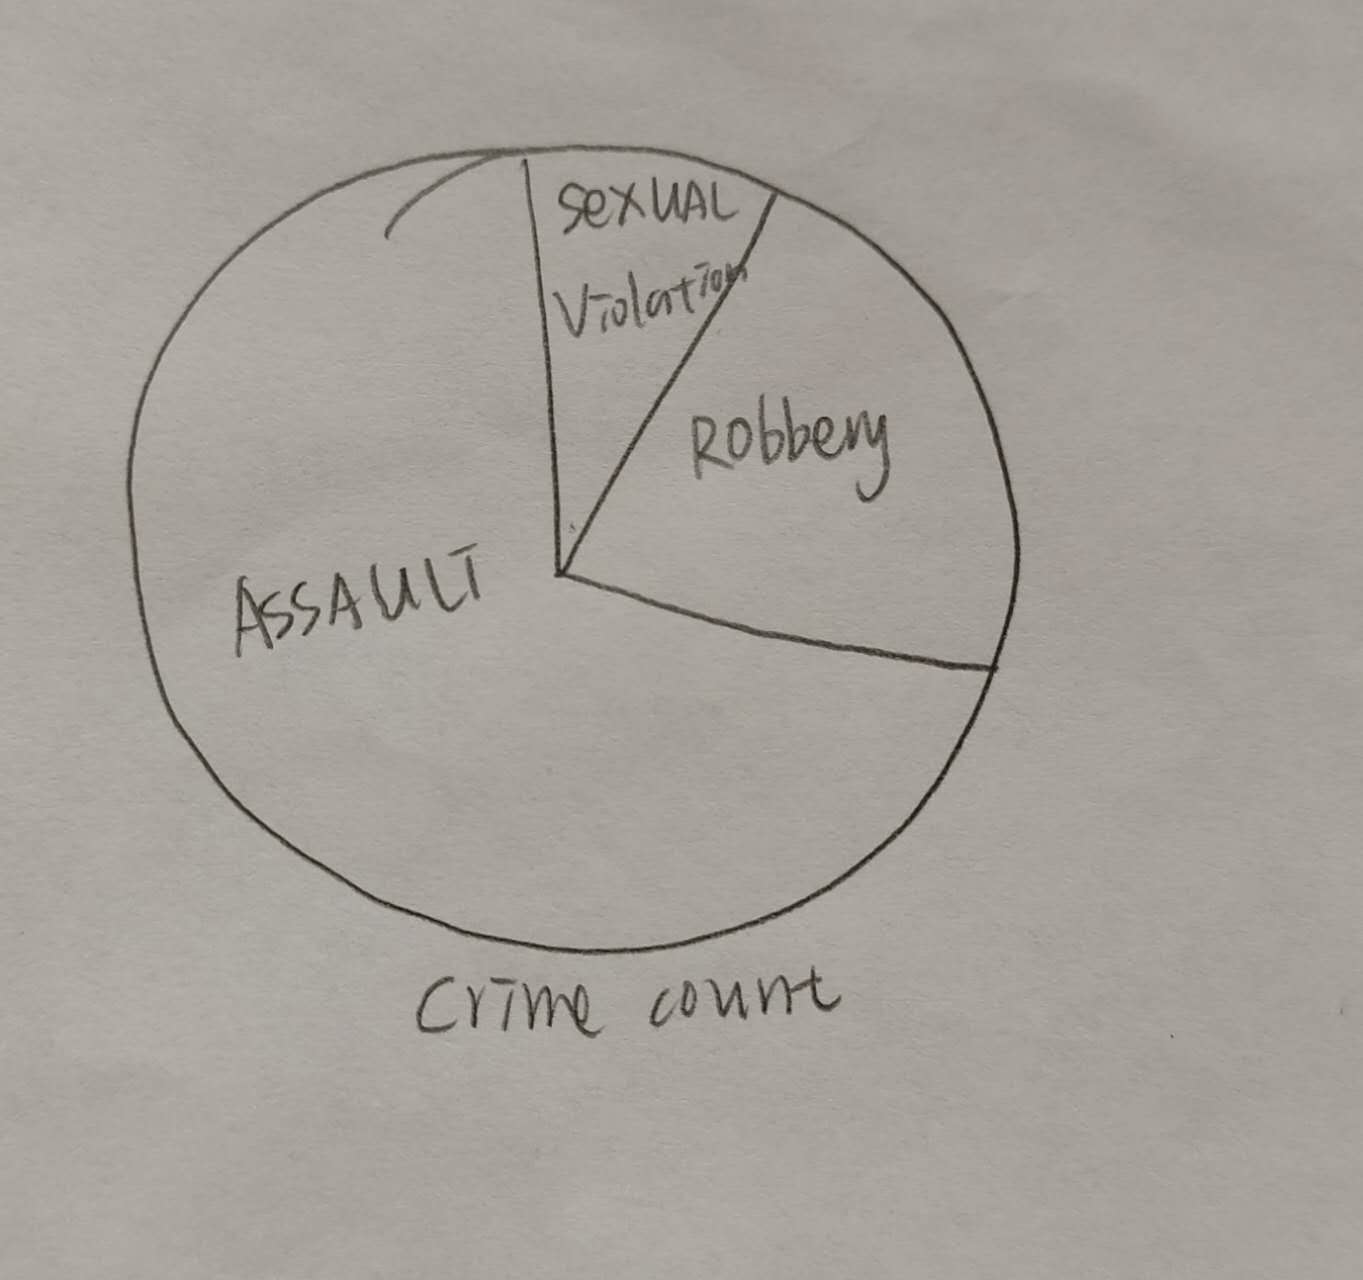 SexUAL
Violation
Robbery
ASSAULT
Crime count